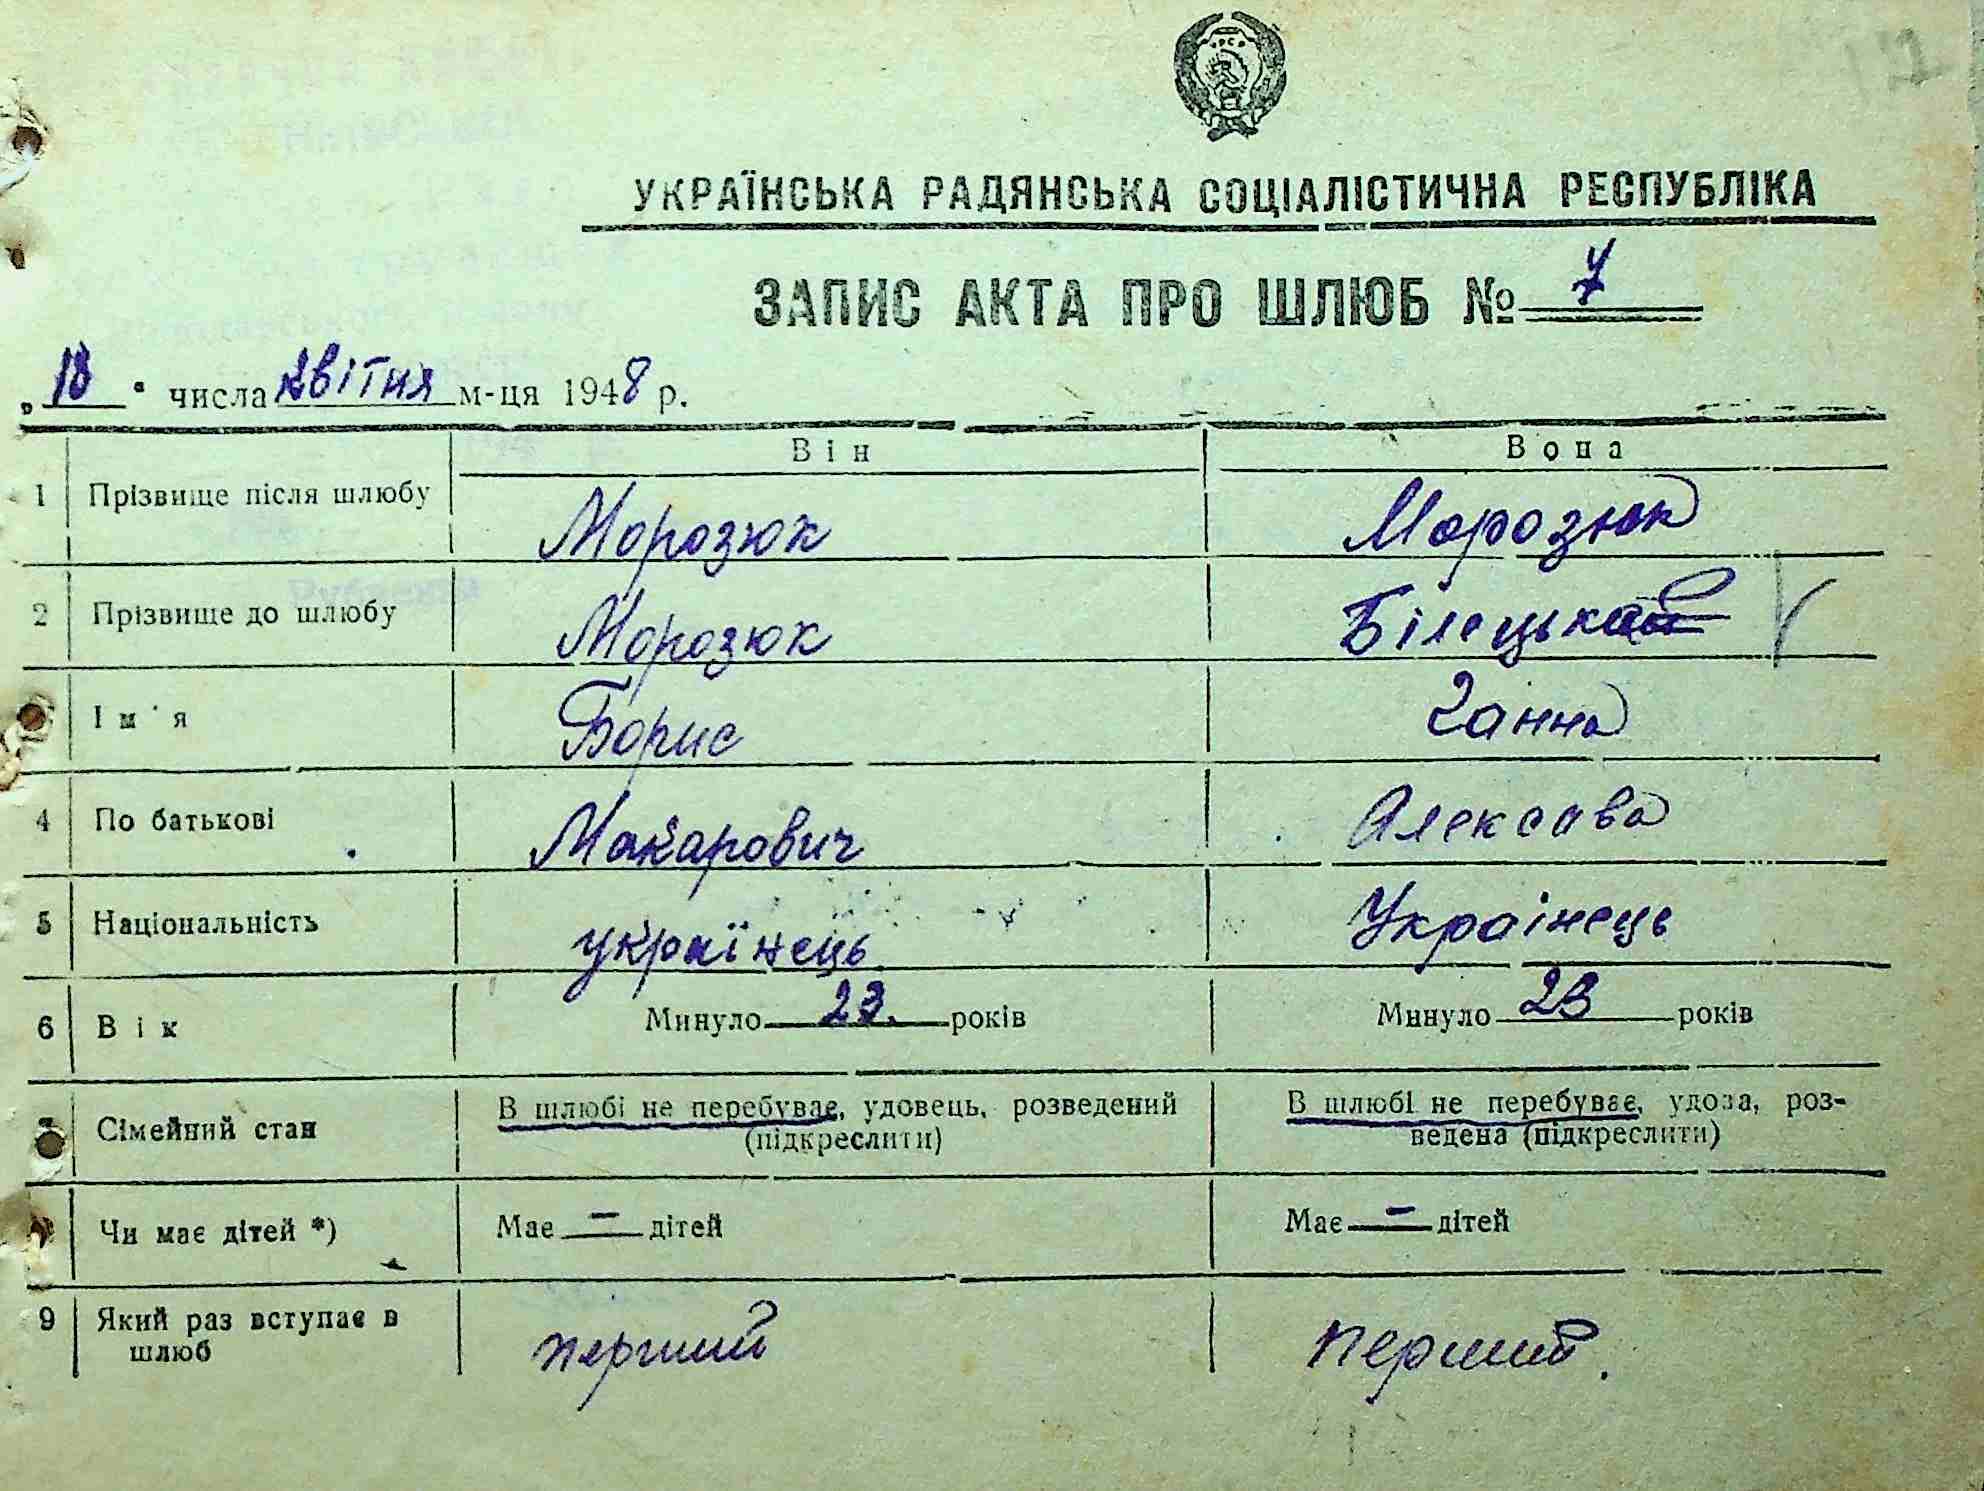 УКРАЇНСЬКА РАДЯНСЬКА СОЦІАЛІСТИЧНА РЕСПУБЛІКА
ЗАПИС АКТА ПРО ШЛЮБ № 7
„18" числа квітня м-ця 1948 р.
Він Вона
1 Прізвище після шлюбу Морозюк Морозюк
2 Прізвище до шлюбу Морозюк Білецька
Ім'я Борис Ганна
4 По батькові Макарович Алексава
5 Національність українець Українець
6 Вік Минуло 23. років Минуло 23 років
7 Сімейний стан В шлюбі не перебуває, удовець, розведений (підкреслити) В шлюбі не перебуває, удова, роз-
ведена (підкреслити)
Чи має дітей *) Має — дітей Має — дітей
9 Який раз вступає в шлюб перший перший.